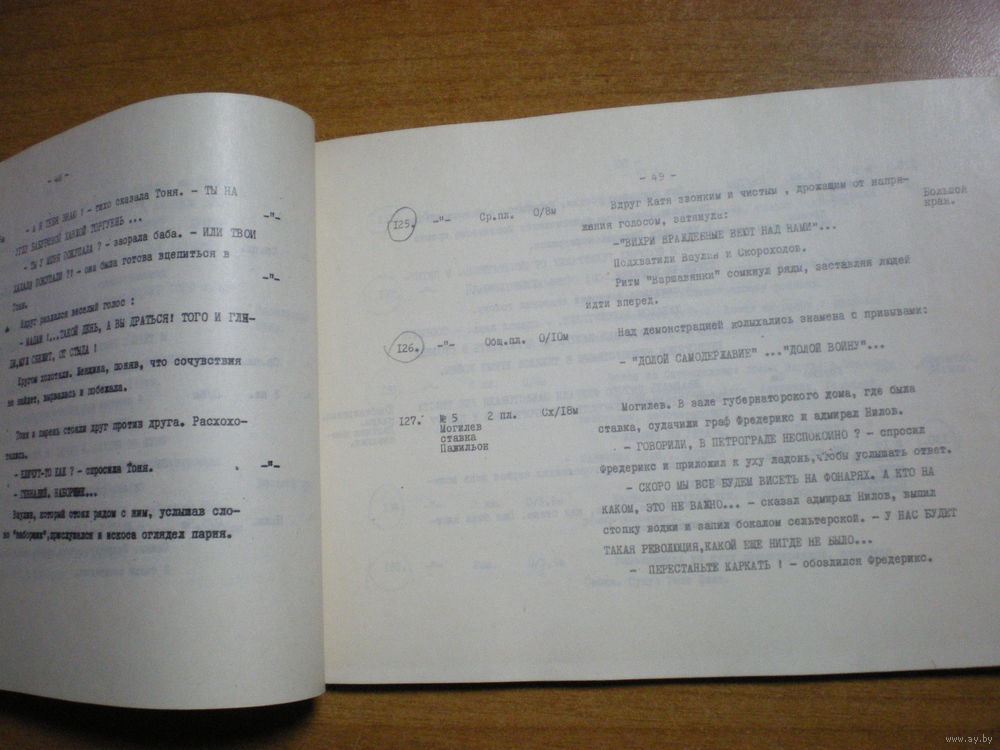 - 48 -
- А Я ТЕБЯ ЗНАЮ ! - тихо сказала Тоня. - ТЫ НА
УГЛУ БАБУРИНОЙ ХАЛВОЙ ТОРГУЕШЬ ...
-"-
- ТЫ У МЕНЯ ПОКУПАЛА ? - заорала баба. - ИЛИ ТВОИ
ПОКУПАЛИ ?? - она была готова вцепиться в
-"-
Тоню.
Вдруг раздался веселый голос :
- МАДАМ !...ТАКОЙ ДЕНЬ, А ВЫ ДРАТЬСЯ! ТОГО И ГЛЯ-
ОТ СТЫДА !
Кругом хохотали. Женщина, поняв, что сочувствия
не найдет, вырвалась и побежала.
Тоня и парень стояли друг против друга. Расхохо-
тались.
- КАК ? - спросила Тоня.
-"-
- ГЕННАДИЙ. НАБОРЩИК...
Ваулин, который стоял рядом с ним, услышав сло-
во "наборщик",прислушался и искоса оглядел парня.
- 49 -
125. -"- Ср.пл. 0/8м
Вдруг Катя звонким и чистым , дрожащим от напря-
жания голосом, затянула:
Большой
кран.
-"ВИХРИ ВРАЖДЕБНЫЕ ВЕЮТ НАД НАМИ"...
Подхватили Ваулин и Скороходов.
Ритм "Варшавянки" сомкнул ряды, заставляя людей
идти вперед.
126. -"- Общ.пл. 0/10м
Над демонстрацией колыхались знамена с призывами:
- "ДОЛОЙ САМОДЕРЖАВИЕ" ..."ДОЛОЙ ВОЙНУ"...
127. № 5 2 пл. Сх/18м
Могилев
ставка
Павильон
Могилев. В зале губернаторского дома, где была
ставка, судачили граф Фредерикс и адмирал Нилов.
- ГОВОРИЛИ, В ПЕТРОГРАДЕ НЕСПОКОЙНО ? - спросил
Фредерикс и приложил к уху ладонь,чтобы услышать ответ.
- СКОРО МЫ ВСЕ БУДЕМ ВИСЕТЬ НА ФОНАРЯХ. А КТО НА
КАКОМ, ЭТО НЕ ВАЖНО... - сказал адмирал Нилов, выпил
стопку водки и запил бокалом сельтерской. - У НАС БУДЕТ
ТАКАЯ РЕВОЛЮЦИЯ,КАКОЙ ЕЩЕ НИГДЕ НЕ БЫЛО...
- ПЕРЕСТАНЬТЕ КАРКАТЬ ! - обозлился Фредерикс.
www.ay.by